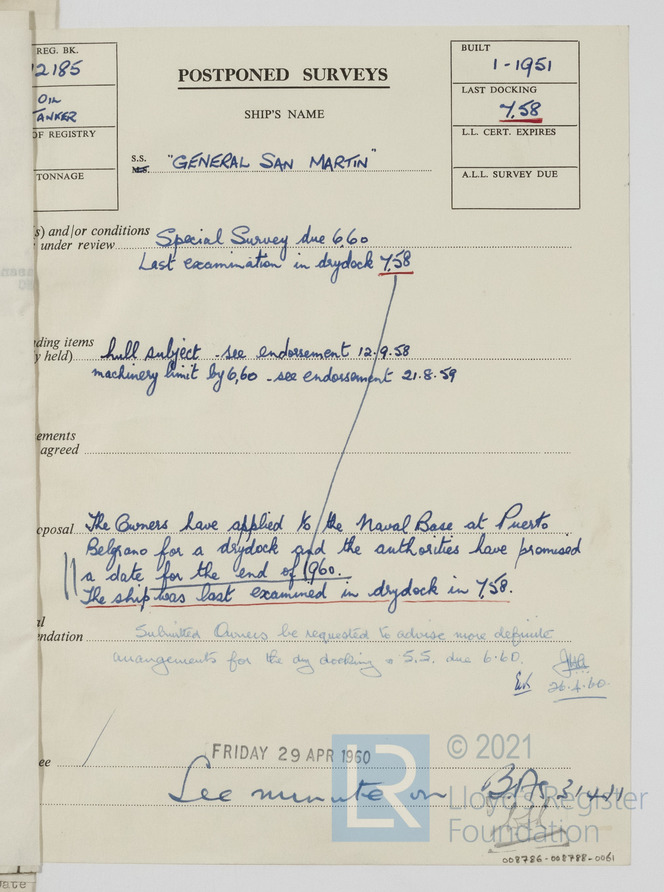 REG. BK.
12185
OIL
TANKER
OF REGISTRY
TONNAGE
POSTPONED SURVEYS
SHIP'S NAME
S.S.
M.S.
"GENERAL SAN MARTIN"
BUILT
1-1951
LAST DOCKING
7.58
L.L. CERT. EXPIRES
A.L.L. SURVEY DUE
s) and/or conditions
under review
Special Survey due 6.60
Last examination in drydock 7.58
ding items
y held)
hull subject - see endorsement 12.9.58
machinery limit by 6.60 - see endorsement 21.8.59
ements
agreed
oposal
The Owners have applied to the Naval Base at Puerto
Belgrano for a drydock and the authorities have promised
a date for the end of 1960.
The ship was last examined in drydock in 7.58.
al
ndation
Submitted Owners be requested to advise more definite
arrangements for the dry docking & S.S. due 6.60.
26.4.60.
ee
FRIDAY 29 APR 1960
See minute on
LR
© 2021
Lloyd's Register
Foundation
008786-008788-0061
Date